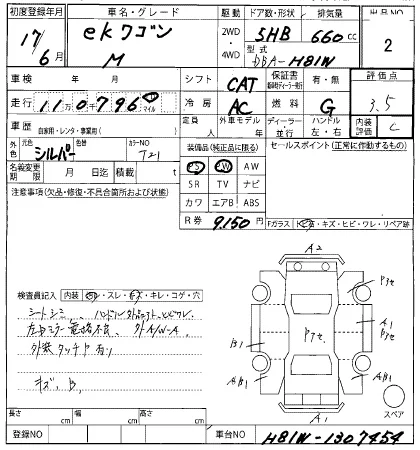 初度登録年月 車名・グレード 駆動 ドア数・形状 排気量 出品NO
17年 ekワゴン 2WD 5HB 660cc 2
6月 M 4WD 型式 DBA-H81W
車検 年 月 シフト CAT 保証書 有・無 評価点
走行 110796 km マイル 冷房 AC 燃料 G 3.5
車歴 自家用・レンタ・事業用( ) 定員 人 外車モデル 年 ディーラー・並行 ハンドル 左・右 内装評価 C
外色 元色 シルバー 色替 カラーNO 装備品(純正品に限る) セールスポイント(正常に作動するもの)
名義変更期限 月 日迄 積載 t PS PW AW
注意事項(欠品・修復・不具合箇所および状態) SR TV ナビ
カワ エアB ABS
R券 9,150円 Fガラス キズ・ヒビ・ワレ・リペア跡
A2
検査員記入 内装 スレ キレ・コゲ・穴
シートシミ
左ドアミラー電格不良、外A/W-A
外装タッチP有り
キズ、B、
Pアセ
Pアセ
A1
Pアセ
B1
AB1
AB1
A1
スペア
長さ cm 幅 cm 高さ cm
登録NO 車台NO H81W-1307454